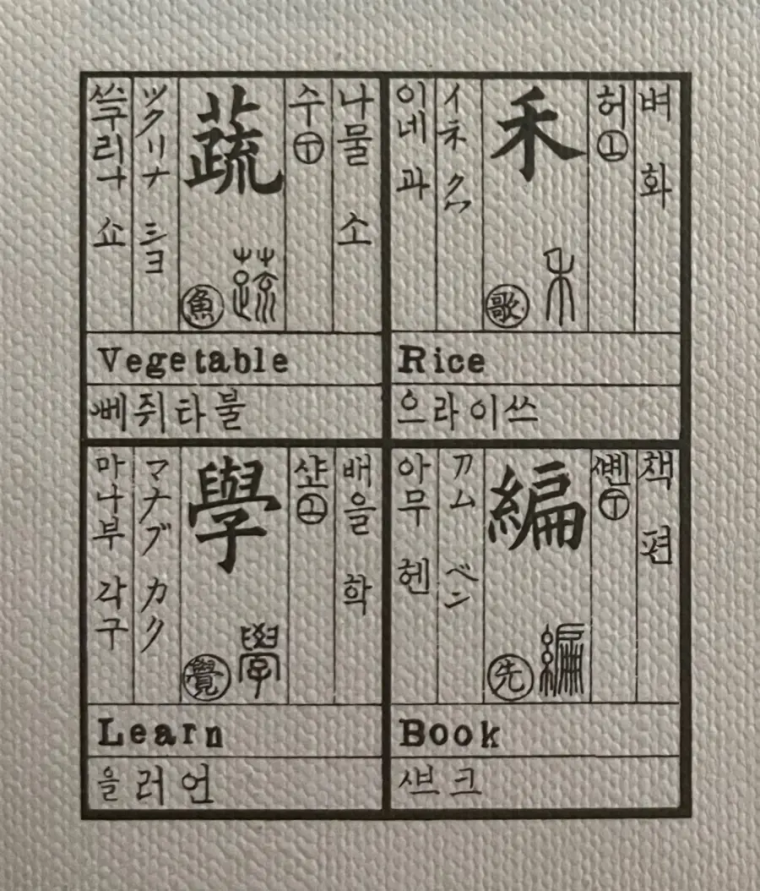 벼 화
허 丄
禾
歌 禾
イネ クハ
이네 과
Rice
으라이쓰
나물 소
수 丅
蔬
魚 蔬
ツクリナ ショ
쇼
Vegetable
뻬쥐타불
책 편
丅
編
先 編
アム ヘン
아무 헨
Book
크
배을 학
學
覺 學
マナブ カク
마나부 각구
Learn
을러언